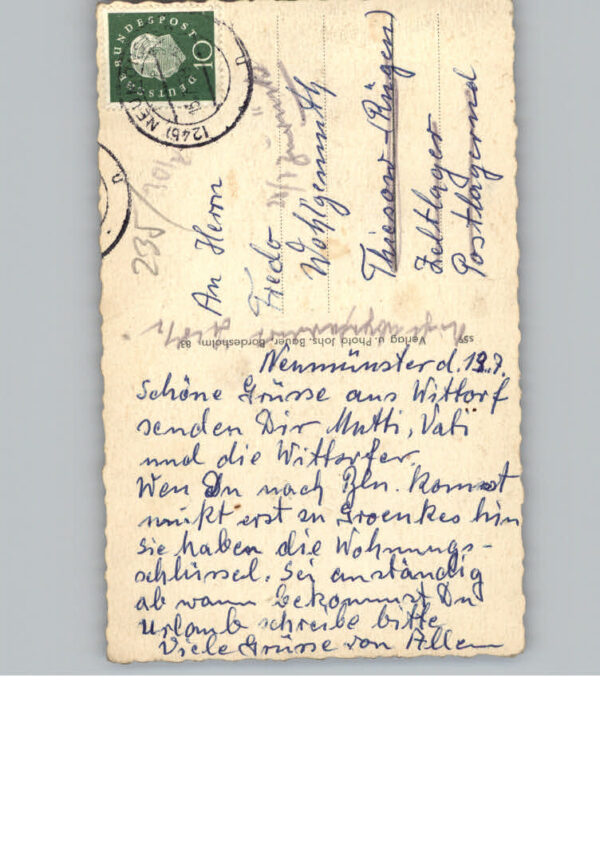 DEUTSCHE BUNDESPOST
10
(24b) NEUM
235
An Herrn
Fredo
Wohlgemuth
Thiesow (Rügen)
Zeltlager
Postlagernd
zurück
Verlag u. Photo Johs. Bauer, Bordesholm, 83
559
Neumünster d. 19.7.
Schöne Grüsse aus Wittorf
senden Dir Mutti, Vati
und die Wittorfer.
Wen Du nach Bln. kommst
mükt erst zu Groenkes hin
Sie haben die Wohnungs-
schlüssel. Sei anständig
ab wann bekommst Du
Urlaub schreibe bitte
Viele Grüsse von Allen